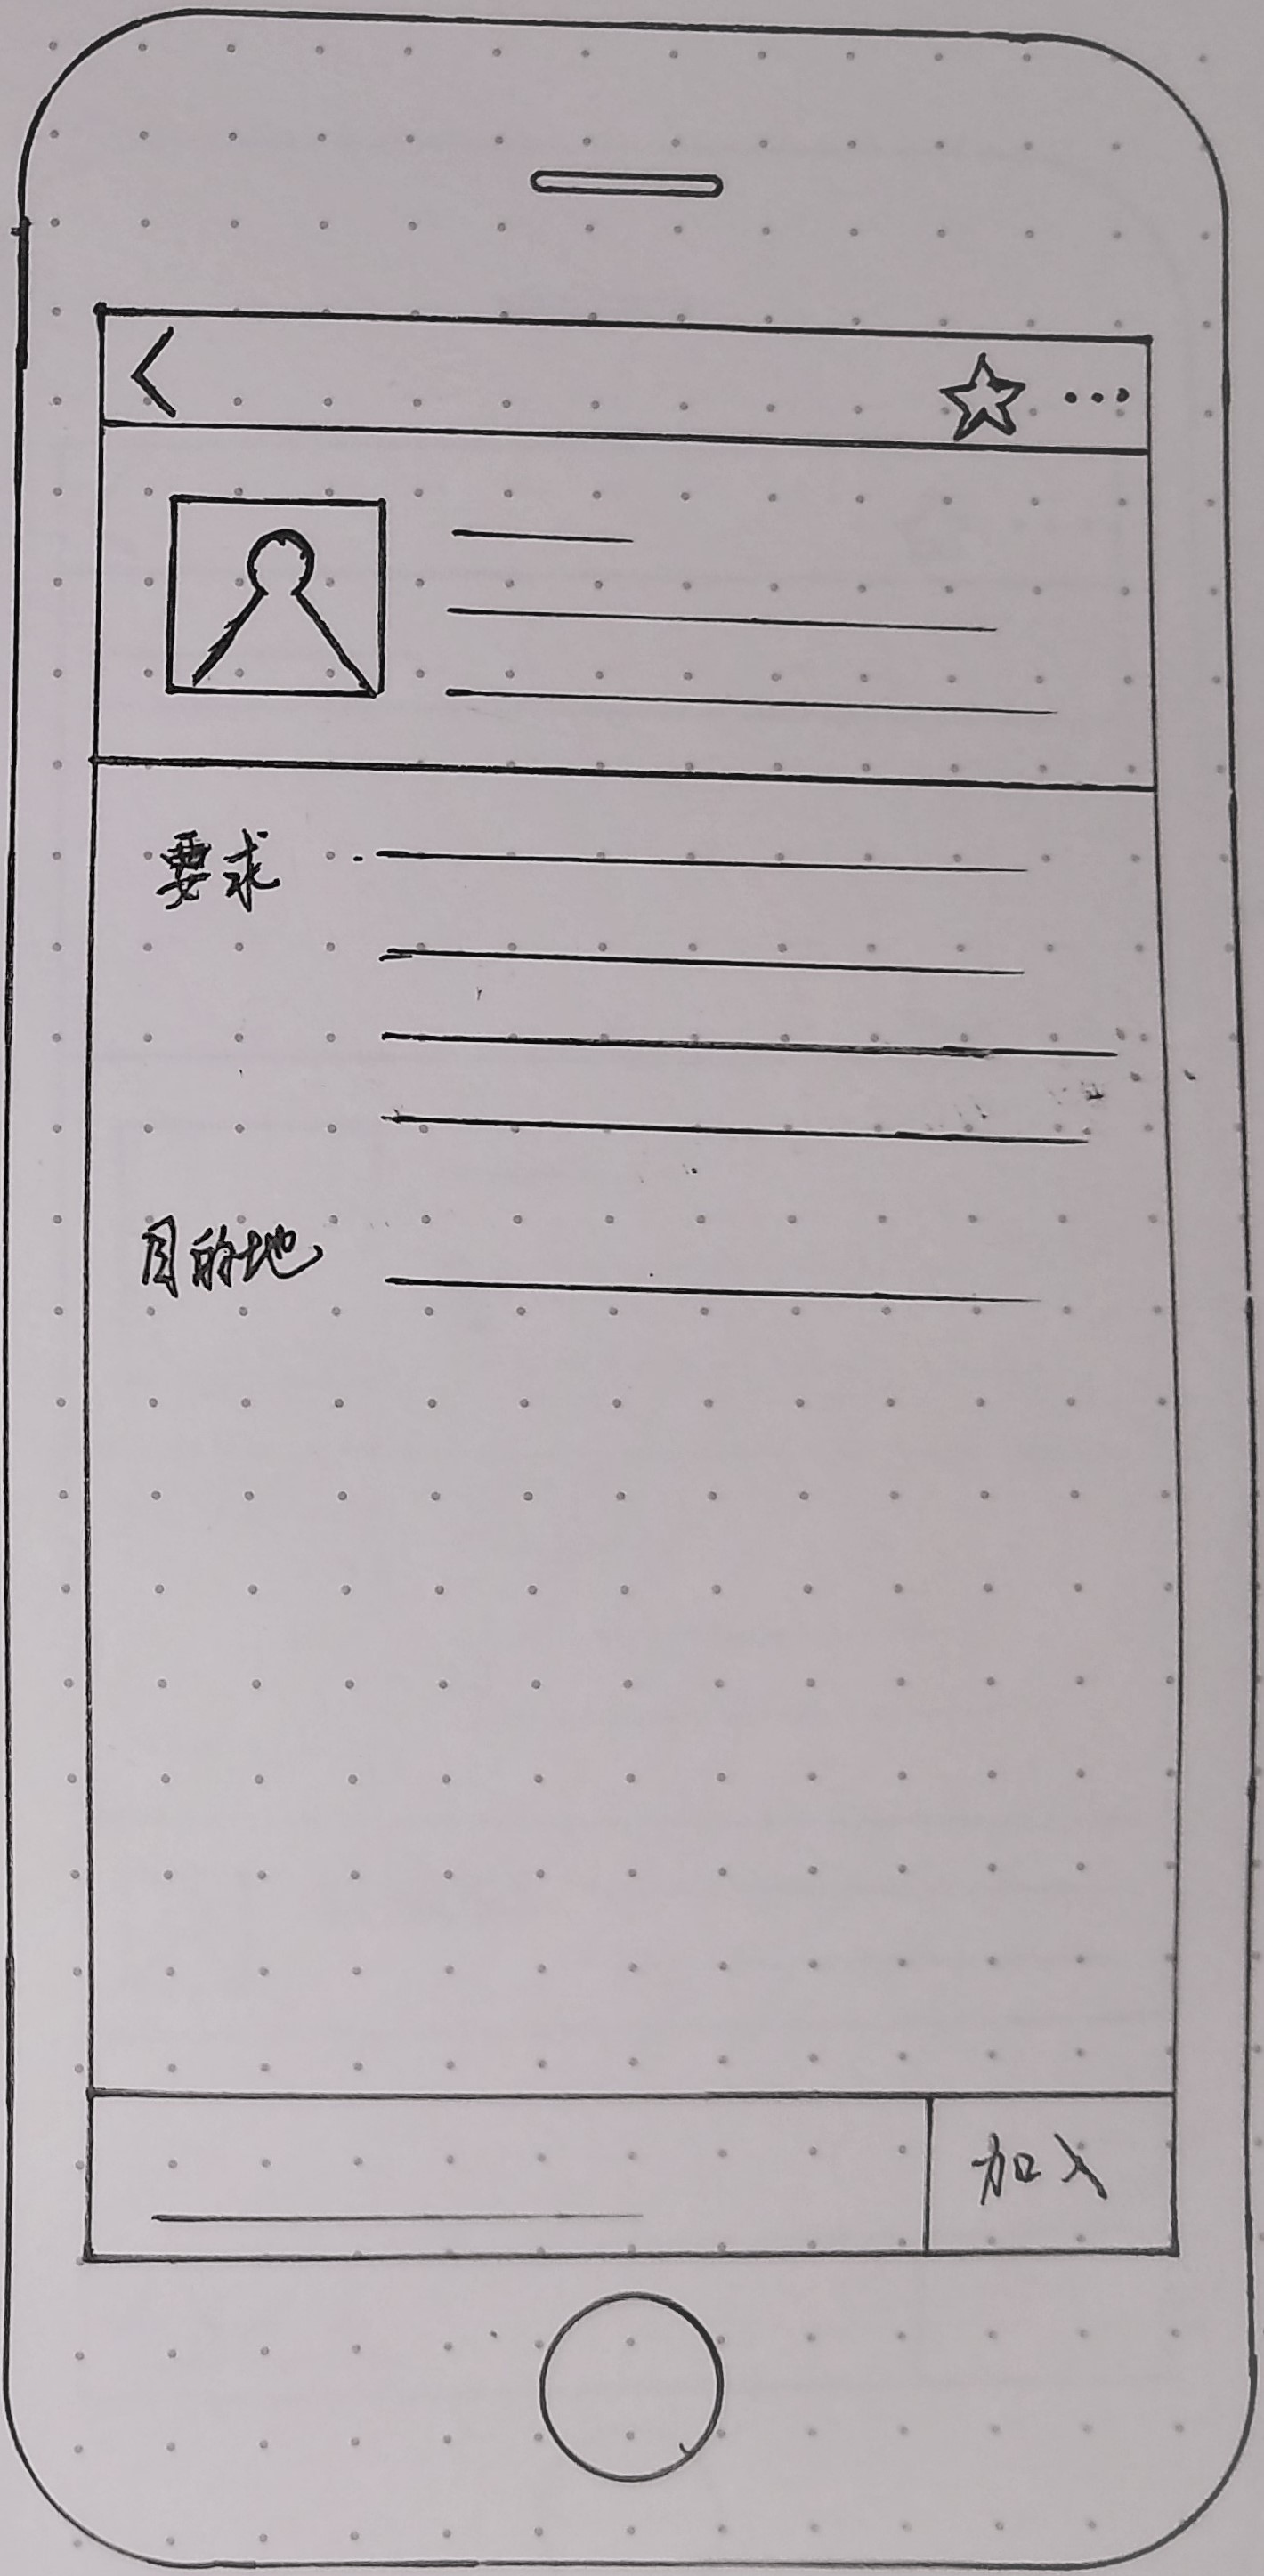 要求
目的地
加入